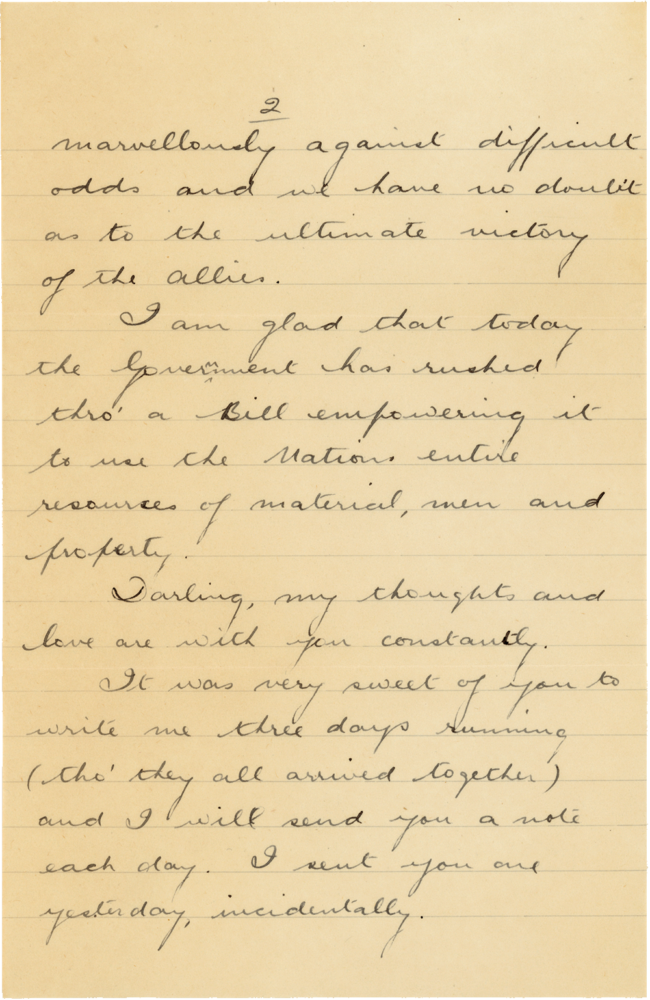 2
marvellously against difficult
odds and we have no doubt
as to the ultimate victory
of the allies.
I am glad that today
the Government has rushed
thro' a Bill empowering it
to use the Nations entire
resources of material, men and
property.
Darling, my thoughts and
love are with you constantly.
It was very sweet of you to
write me three days running
(tho' they all arrived together)
and I will send you a note
each day. I sent you one
yesterday, incidentally.